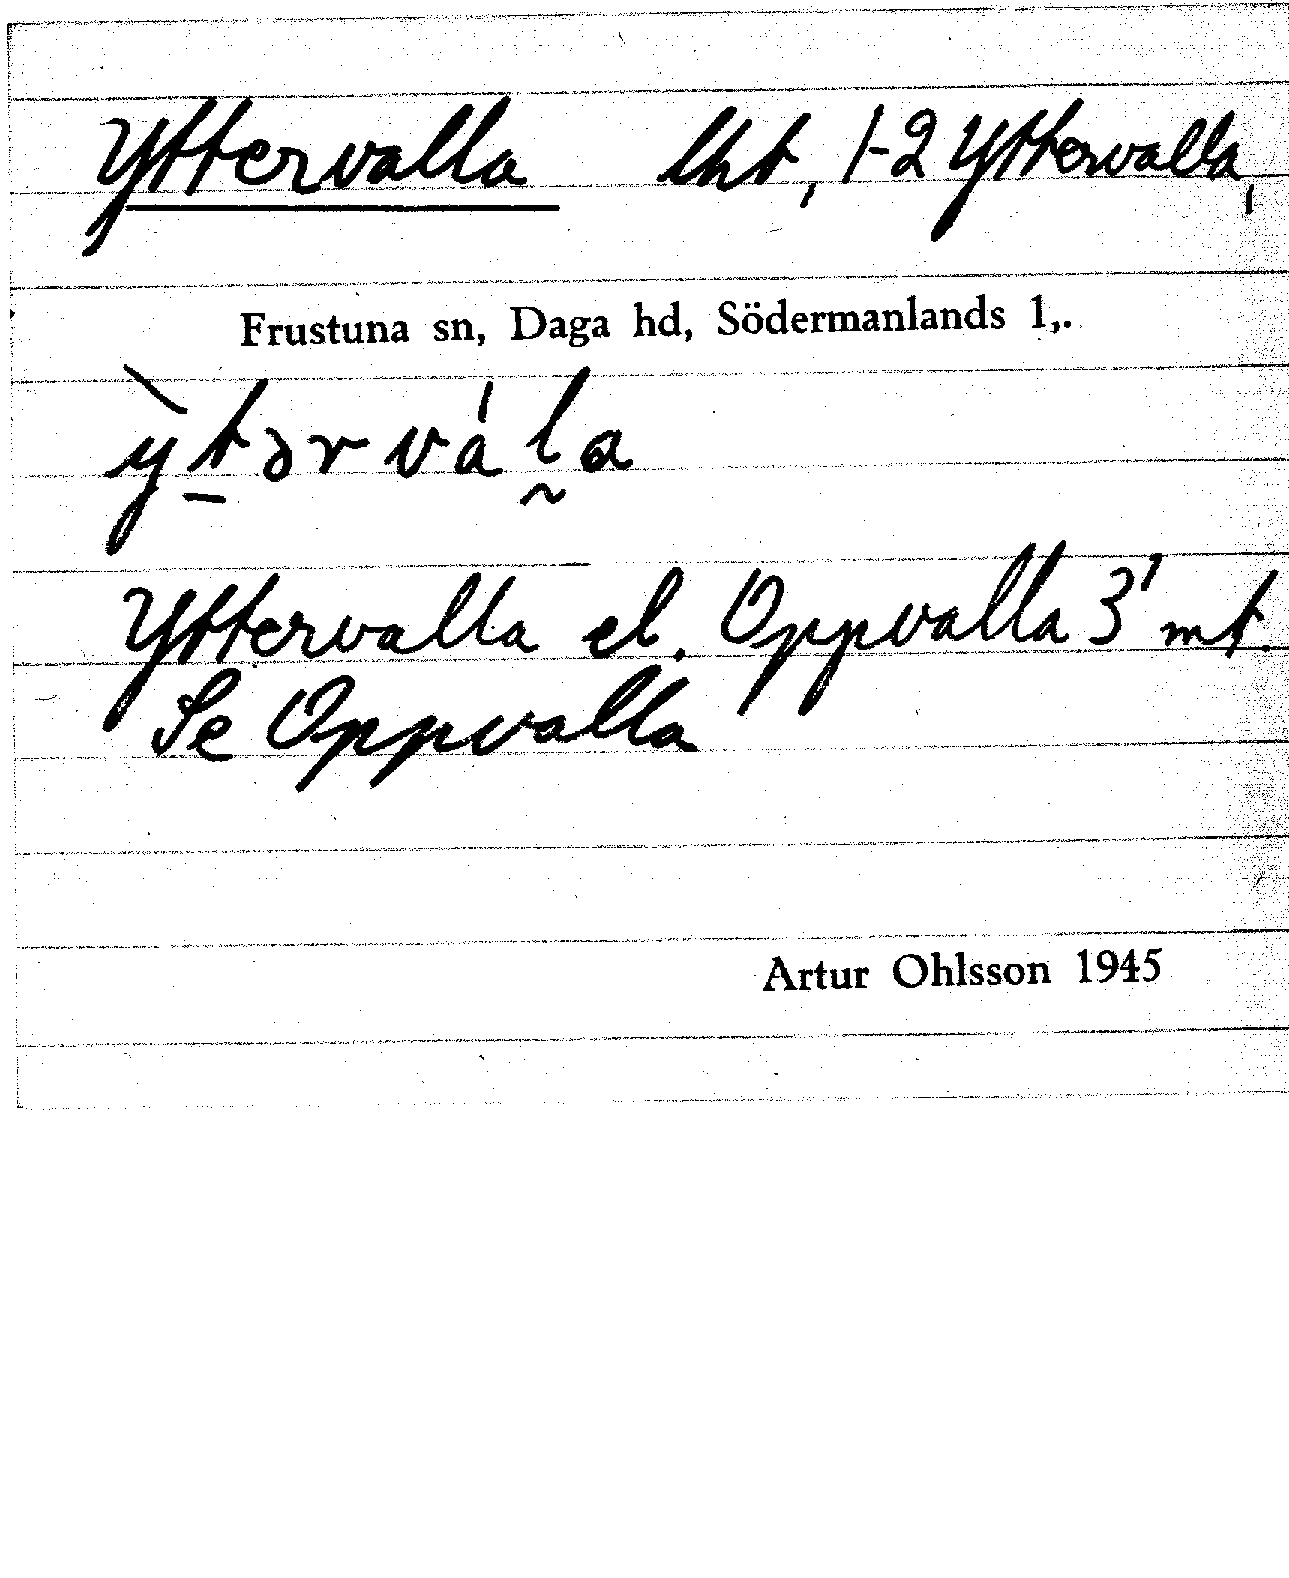 Yttervalla lht, 1-2 Yttervalla,
Frustuna sn, Daga hd, Södermanlands l,.
ỳt̲ərvál̰a
Yttervalla el. Oppvalla 3' mt.
Se Oppvalla
Artur Ohlsson 1945